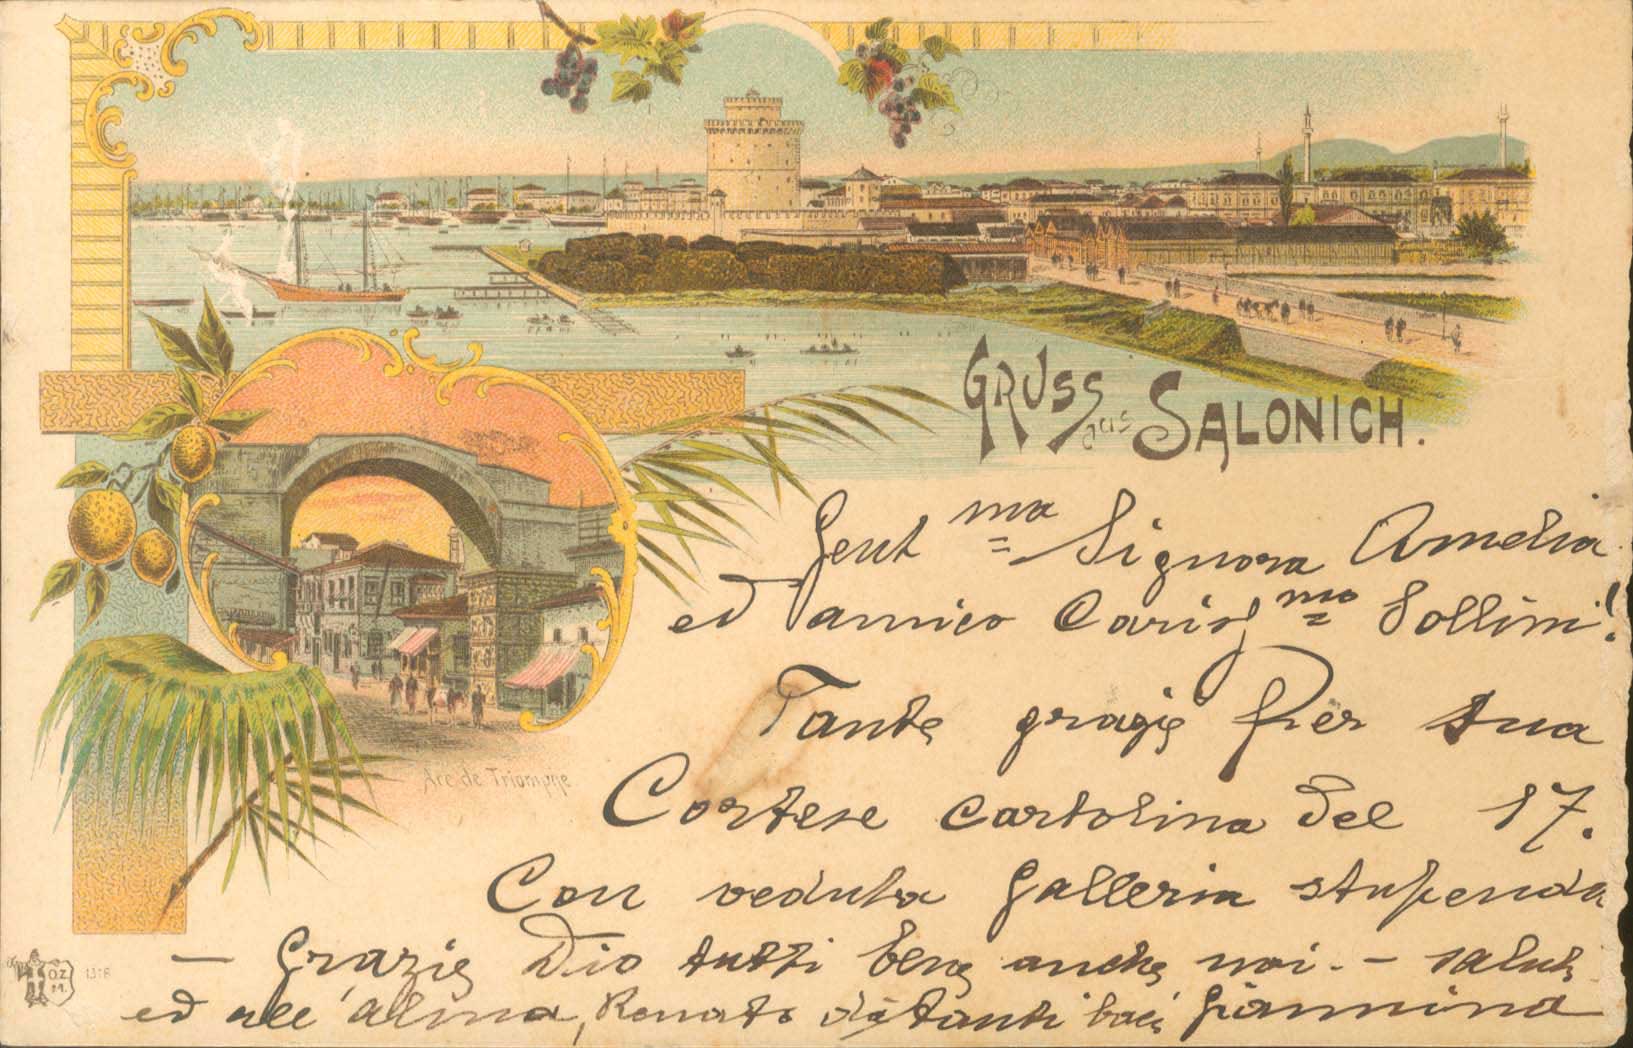 GRUSS aus SALONICH.
Gent ma Signora Amelia
ed amico Cariss mo Sollini!
Tante grazie per sua
Cortese cartolina del 17.
Con veduta Galleria stupenda
– Grazie Dio tutti bene anche noi. – saluti
ed all'alma, Renato dà tanti baci Giannina
Arc de Triomphe
O.Z.
M.
1318